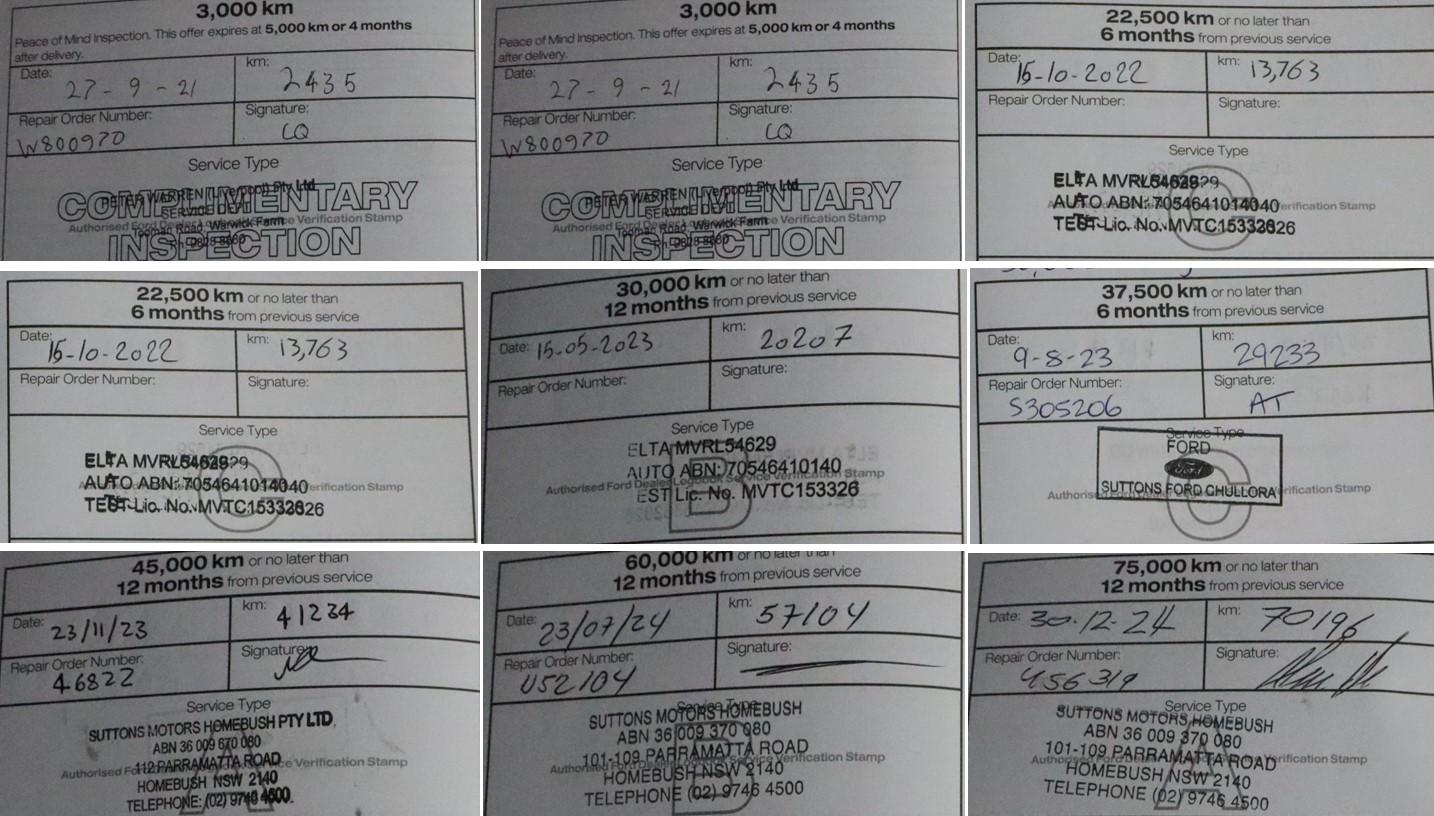 3,000 km
Peace of Mind Inspection. This offer expires at 5,000 km or 4 months
after delivery.
Date: 27-9-21
km: 2435
Repair Order Number: W800970
Signature: CQ
Service Type
COMPLIMENTARY
PETER WARREN (Liverpool) Pty Ltd
SERVICE DEPT
Authorised Ford Dealer Verification Stamp
Warwick Farm
INSPECTION
3,000 km
Peace of Mind Inspection. This offer expires at 5,000 km or 4 months
after delivery.
Date: 27-9-21
km: 2435
Repair Order Number: W800970
Signature: CQ
Service Type
COMPLIMENTARY
PETER WARREN (Liverpool) Pty Ltd
SERVICE DEPT
Authorised Ford Dealer Verification Stamp
Warwick Farm
INSPECTION
22,500 km or no later than
6 months from previous service
Date: 15-10-2022
km: 13,763
Repair Order Number:
Signature:
Service Type
C
ELTA
AUTO ABN:
Verification Stamp
TEST Lic. No.
22,500 km or no later than
6 months from previous service
Date: 15-10-2022
km: 13,763
Repair Order Number:
Signature:
Service Type
C
ELTA
AUTO ABN:
Verification Stamp
TEST Lic. No.
30,000 km or no later than
12 months from previous service
Date: 15-05-2023
km: 20207
Repair Order Number:
Signature:
Service Type
B
ELTA MVRL54629
AUTO ABN: 70546410140
Authorised Ford Dealer Logbook Service Verification Stamp
EST Lic. No. MVTC153326
37,500 km or no later than
6 months from previous service
Date: 9-8-23
km: 29233
Repair Order Number: S305206
Signature: AT
Service Type
C
FORD
Ford
SUTTONS FORD CHULLORA
Authorised Ford Verification Stamp
45,000 km or no later than
12 months from previous service
Date: 23/11/23
km: 41234
Repair Order Number: 46822
Signature:
Service Type
A
SUTTONS MOTORS HOMEBUSH PTY LTD.
ABN 36 009 670 080
112 PARRAMATTA ROAD
Authorised Service Verification Stamp
HOMEBUSH NSW 2140
TELEPHONE: (02) 9746 4500
60,000 km or no later than
12 months from previous service
Date: 23/07/24
km: 57104
Repair Order Number: U52104
Signature:
Service Type
B
SUTTONS MOTORS HOMEBUSH
ABN 36 009 370 080
101-109 PARRAMATTA ROAD
Authorised Ford Verification Stamp
HOMEBUSH NSW 2140
TELEPHONE (02) 9746 4500
75,000 km or no later than
12 months from previous service
Date: 30.12.24
km: 70196
Repair Order Number: 456319
Signature:
Service Type
A
SUTTONS MOTORS HOMEBUSH
ABN 36 009 370 080
101-109 PARRAMATTA ROAD
Authorised Ford Verification Stamp
HOMEBUSH NSW 2140
TELEPHONE (02) 9746 4500